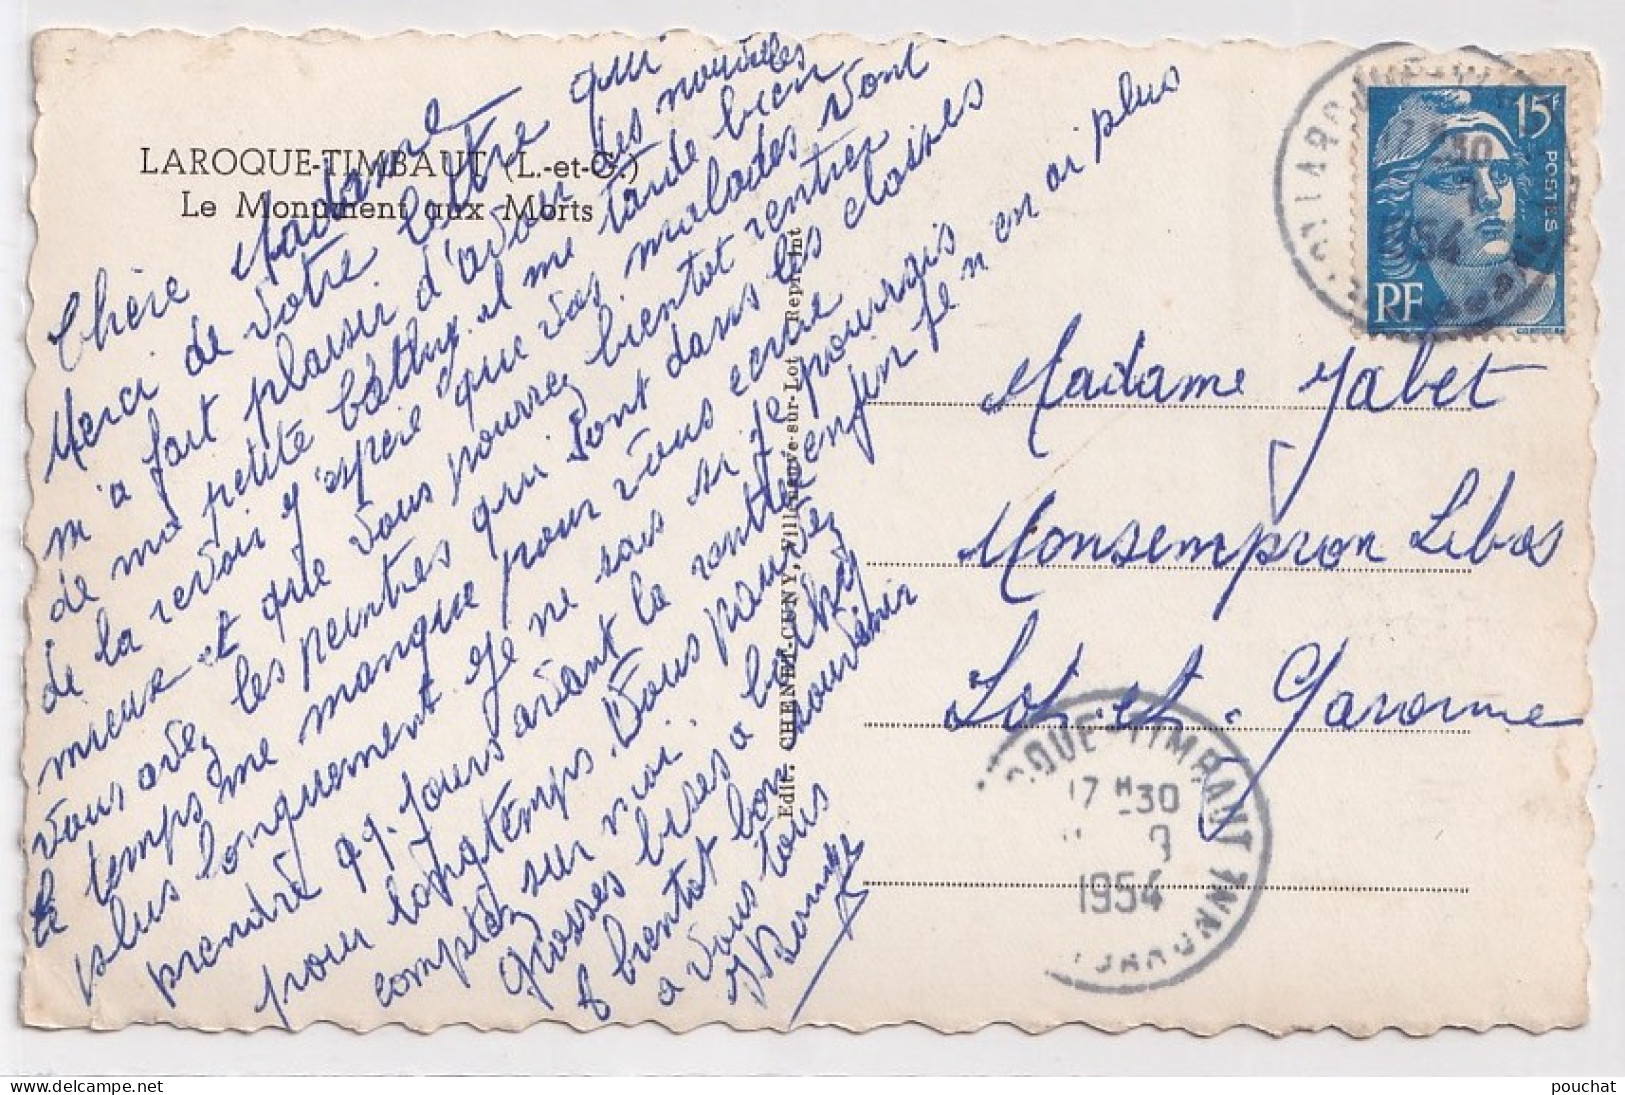 LAROQUE-TIMBAUT (L.-et-G.)
Le Monument aux Morts
Chère Madame
Merci de votre lettre qui
m'a fait plaisir d'avoir des nouvelles
de ma petite il me tarde bien
de la revoir j'espère que vos malades vont
mieux et que vous pourrez bientot rentrer
vous avez les peintres qui sont dans les classes
le temps me manque pour vous ecrire
plus longuement. Je ne sais si je pourrais
prendre qq. jours avant la rentrée enfin je n'en ai plus
pour longtemps. Vous pouvez
comptez sur moi.
grosses bises a
& bientot bon souvenir
a vous tous
Edit. CHENET-CUNY, Villeneuve-sur-Lot Reprint
15F
POSTES
RF
Madame
Monsempron Libos
Lot et Garonne
17 H 30
9
1954
pouchat